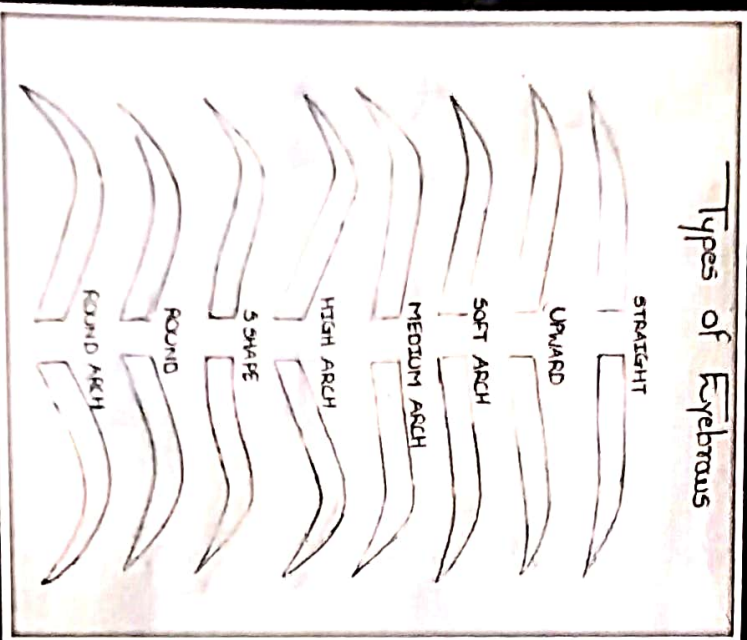 Types of Eyebrows
STRAIGHT
UPWARD
SOFT ARCH
MEDIUM ARCH
HIGH ARCH
S SHAPE
ROUND
ROUND ARCH